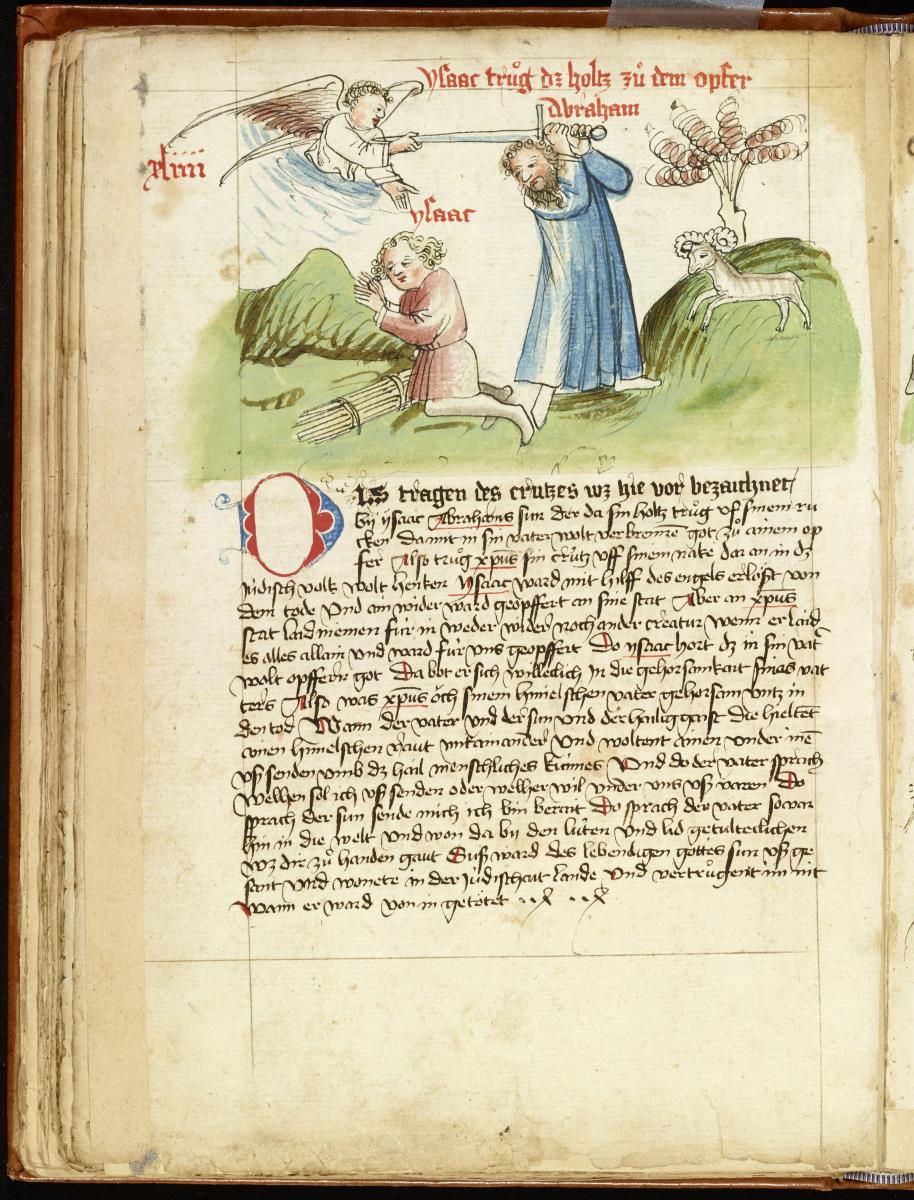 ysaac trůg dz holtz zů dem opfer
Abraham
xliiii
ysaac
DIs tragen des crützes wz hie vor bezaichnet
by ysaac Abrahams sun der da sin holtz trůg vf sinem ru
cken damit in sin vater wolt verbrennē got zů ainem op
fer Also trůg xp̄us sin crütz vff sinem nake dar an in dz
iúdisch volk wolt henken ysaac ward mit hilff des engels erlöst von
dem tode Vnd ain wider ward geopffert an sine stat Aber an xp̄us
stat laid niemen für in weder wider noch ander creatur wenn er laid
es alles allain vnd ward für vns geopffert Do ysaac hort dz in sin vat̄
wolt opffern got Da bot er sich willeclich in die gehorsamkait sines vat
ters Also was xp̄us öch sinem himelschen vater gehorsam vntz in
den tod Wann der vater vnd der sun vnd der hailig gaist die hieltēt
ainen himelschen raut mitainander Vnd woltent ainen vnder inē
vß senden vmb dz hail menschliches künnes Vnd do der vater sprach
Welhen sol ich vß senden oder welher wil vnder vns vß varen Do
sprach der sun sende mich ich bin berait Do sprach der vater so var
hin in die welt vnd won da by den lüten vnd lid getulteclichen
wz dir zů handen gaut Suß ward des lebendigen gottes sun vß ge
sant vnd wonete in der Jüdischait lande Vnd vertrůgent im nit
Wann er ward von in getötet